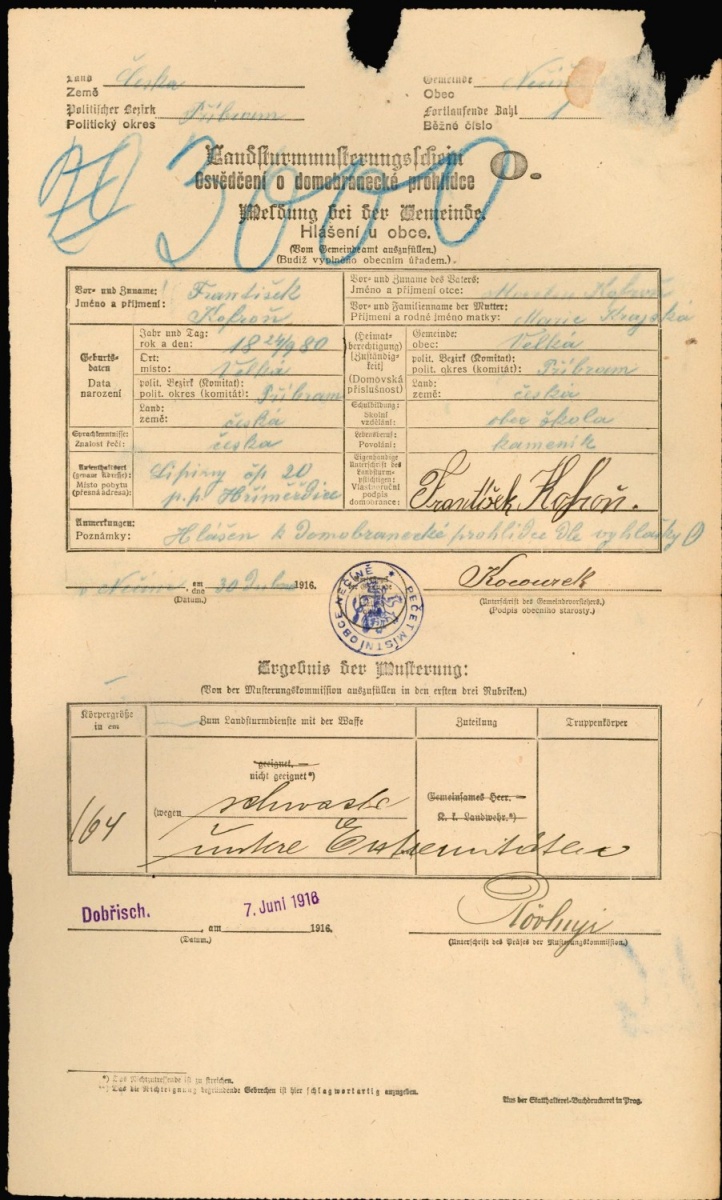 Land Česká Gemeinde
Země Obec
Politischer Bezirk Příbram Fortlaufende Zahl 1
Politický okres Běžné číslo
3000
Landsturmmusterungsschein O.
Osvědčení o domobranecké prohlídce
Meldung bei der Gemeinde.
Hlášení u obce.
(Vom Gemeindeamt auszufüllen.)
(Budiž vyplněno obecním úřadem.)
Vor- und Zuname:
Jméno a příjmení:
František
Kofroň
Vor- und Zuname des Vaters:
Jméno a příjmení otce: Kofroň
Vor- und Familienname der Mutter:
Příjmení a rodné jméno matky: Marie Krajská
Geburts-
daten
Data
narození
Jahr und Tag:
rok a den: 18 24/9 80
Ort:
místo: Velká
polit. Bezirk (Komitat):
polit. okres (komitát): Příbram
Land:
země: česká
(Heimat-
berechtigung)
(Zuständig-
keit)
(Domovská
příslušnost)
Gemeinde:
obec: Velká
polit. Bezirk (Komitat):
polit. okres (komitát): Příbram
Land:
země: česká
Sprachkenntnisse:
Znalost řečí: česká
Schulbildung:
Školní
vzdělání: obec. škola
Lebensberuf:
Povolání: kameník
Aufenthaltsort
(genaue Adresse):
Místo pobytu
(přesná adresa):
čp 20
p.p.
Eigenhändige
Unterschrift des
Landsturm-
pflichtigen:
Vlastnoruční
podpis
domobrance:
František Kofroň.
Anmerkungen:
Poznámky: Hlášen k domobranecké prohlídce dle vyhlášky O
am
dne 30 Dubna 1916.
(Datum.)
PEČEŤ MÍSTNÍ OBCE NEČÍNĚ
Kocourek
(Unterschrift des Gemeindevorstehers.)
(Podpis obecního starosty.)
Ergebnis der Musterung:
(Von der Musterungskommission auszufüllen in den ersten drei Rubriken.)
Körpergröße
in cm
Zum Landsturmdienste mit der Waffe
Zuteilung
Truppenkörper
164
geeignet, —
nicht geeignet*)
(wegen schwache
untere Extremitäten
Gemeinsames Heer. —
K. k. Landwehr.*)
Dobřisch. am 7. Juni 1916 1916.
(Datum.)
(Unterschrift des Präses der Musterungskommission.)
*) Das Nichtzutreffende ist zu streichen.
**) Das die Nichteignung begründende Gebrechen ist hier schlagwortartig anzugeben.
Aus der Statthalterei-Buchdruckerei in Prag.